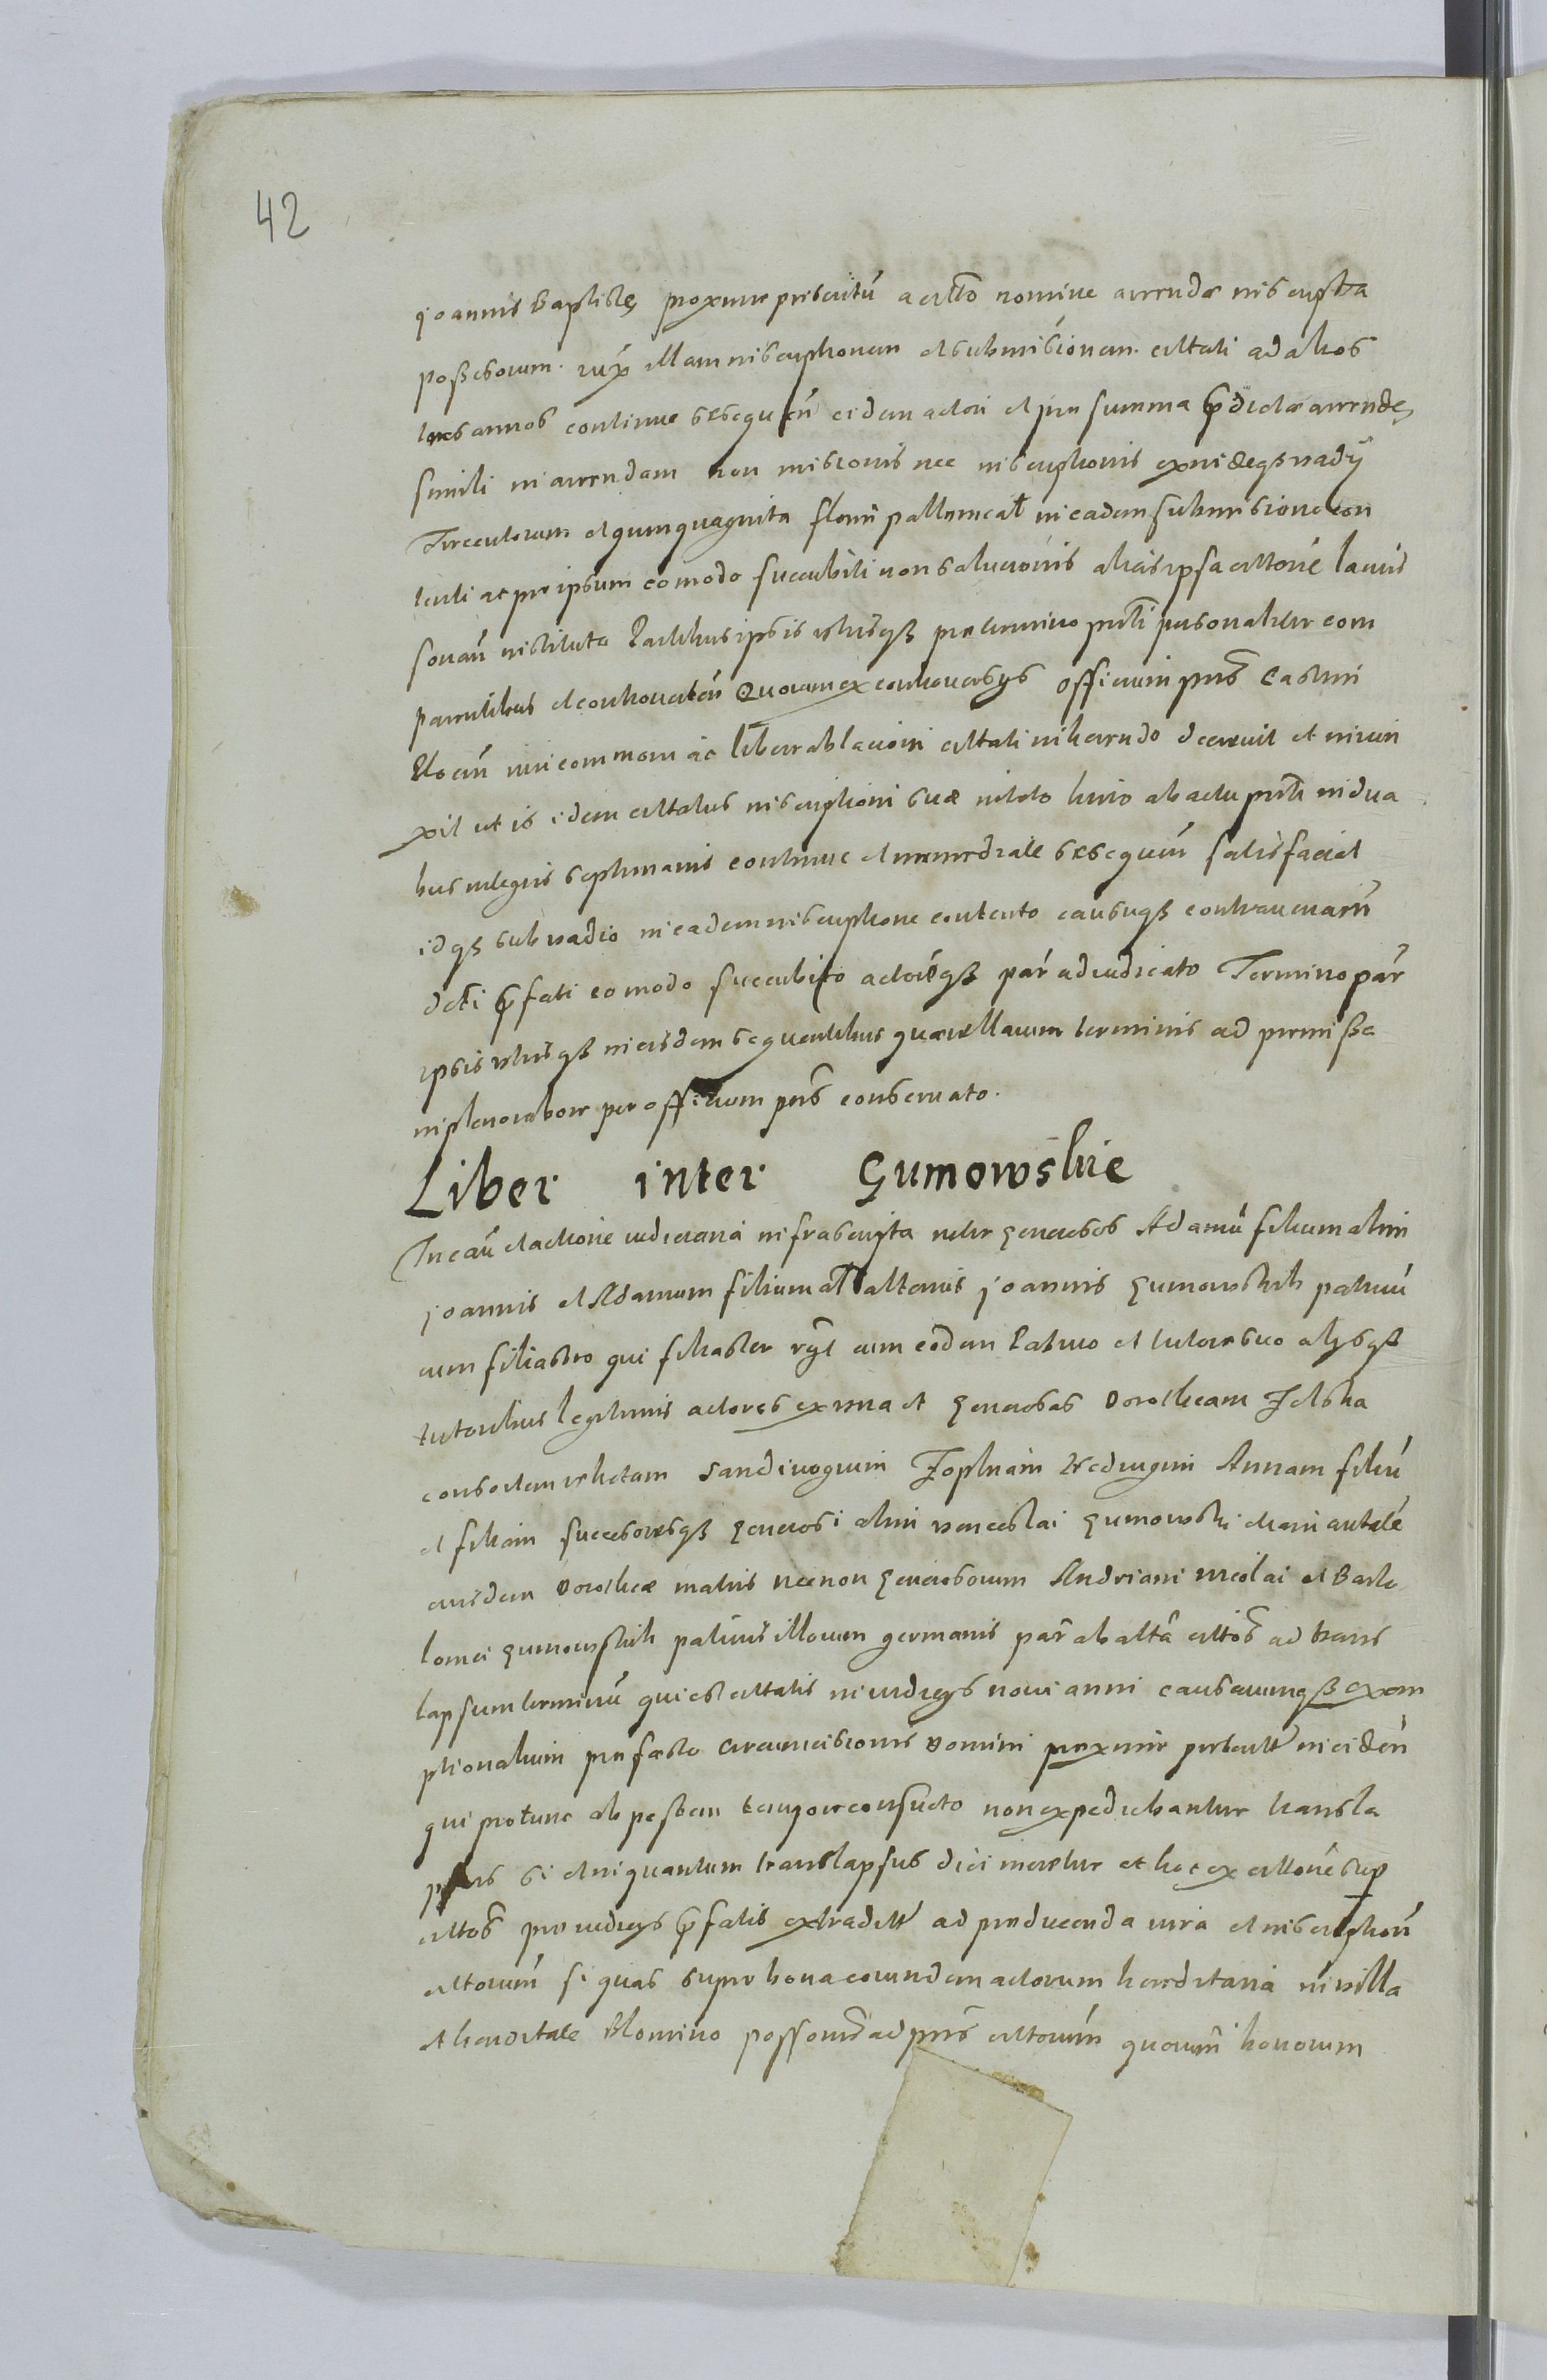 42
Joannis Baptistę proxime preteritū a citato nomine arrendæ inscripta
possessorum iuxta illam inscriptionem et submissionem citati ad alios
tres annos continue sese quen eidem actori et pro summa p̄dictæ arrendę
simili in arrendam non missionis nec inscriptionis exindeqз vadÿ
Trecentorum et quinquaginta floren pollinceat in eadem submissione con
tenti ac pro ipsum eo modo succubiti non solucionis alias ipsa citatione lacius
sonan instituto Partibus ipsis utrisqз pro termino pnti personaliter com
parentibus et controverten Quorum ex controversys officium pns Castren
Plocen inicommom ac liberæ ablacioni citati inherendo decrevit et iniun
xit ut is idem citatus inscriptioni suæ in toto hinc ab actu pnti in dua
bus integris septimanis continue et immediate sese quen satisfaciat
idqз sub vadio in eadem inscriptione contento causaqз contravenciōn
dcti p̄fati eo modo succubito actoriqз par adiudicato Termino par
ipsis utrisqз in eisdem sequentibus quærellarum terminis ad premissa
in pleno robore per officium pns conservato.
Liber inter Gumowskie
In cau et actione iudiciaria infrascripta inter generosos Adamū filium olim
Joannis et Adamum filium al alterius Joannis Gumowskich patruū
cum filiastro qui filiaster rgt cum eodem Patruo et tutore suo alysqз
tutoribus legitimis actores ex una et generosas Dorotheam Zelska
consortem relictam Sandivogium Zophiam Hedvigim Annam filiū
et filiam successoresqз generosi olim venceslai Gumowski etiam autate
eiusdem Dorotheæ matris necnon generosorum Andriani Nicolai et Barto
lomei Gumowskich patruis illorum germanis par ab altā citos ad trans
lapsum terminū qui est citatis in iudicys novi anni causarumqз exem
ptionalium pro festo Circumcisionis Domini proxime preterit inciden
qui pro tunc ob pestem tempore consueto non expediebantur transla
psus si et in quantum translapsus dici meretur et hoc ex citatione sup
citos pro iudicys p̄fatis extradit ad producenda iura et inscription
citatorum si quas super bona eorundem actorum hæreditaria in villa
et hæreditate Blomino possons ad pns citatorum quorum bonorum